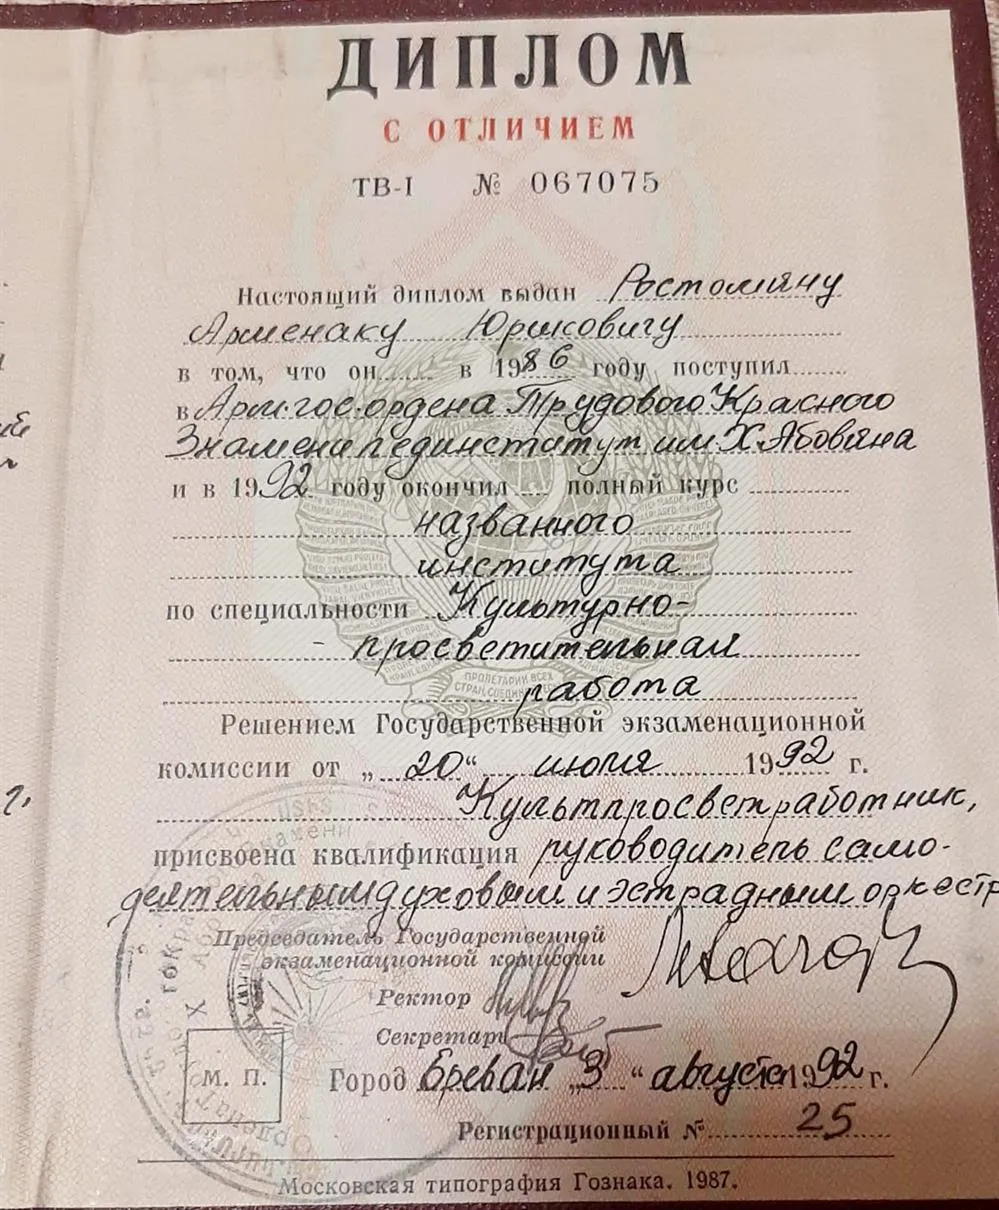 ДИПЛОМ
С ОТЛИЧИЕМ
ТВ-I № 067075
Настоящий диплом выдан Ростомяну
Арменаку Юриковичу
в том, что он в 1986 году поступил
в Арм. гос. ордена Трудового Красного
Знамени пединститут им. Х. Абовяна
и в 1992 году окончил полный курс
названного
института
по специальности Культурно-
- просветительная
работа
Решением Государственной экзаменационной
комиссии от „20“ июня 1992 г.
Культпросветработник,
присвоена квалификация руководитель само-
деятельным духовым и эстрадным оркестр
Председатель Государственной
экзаменационной комиссии
Ректор
Секретарь
М. П.
Город Ереван „3“ августа 1992 г.
Регистрационный № 25
Московская типография Гознака. 1987.